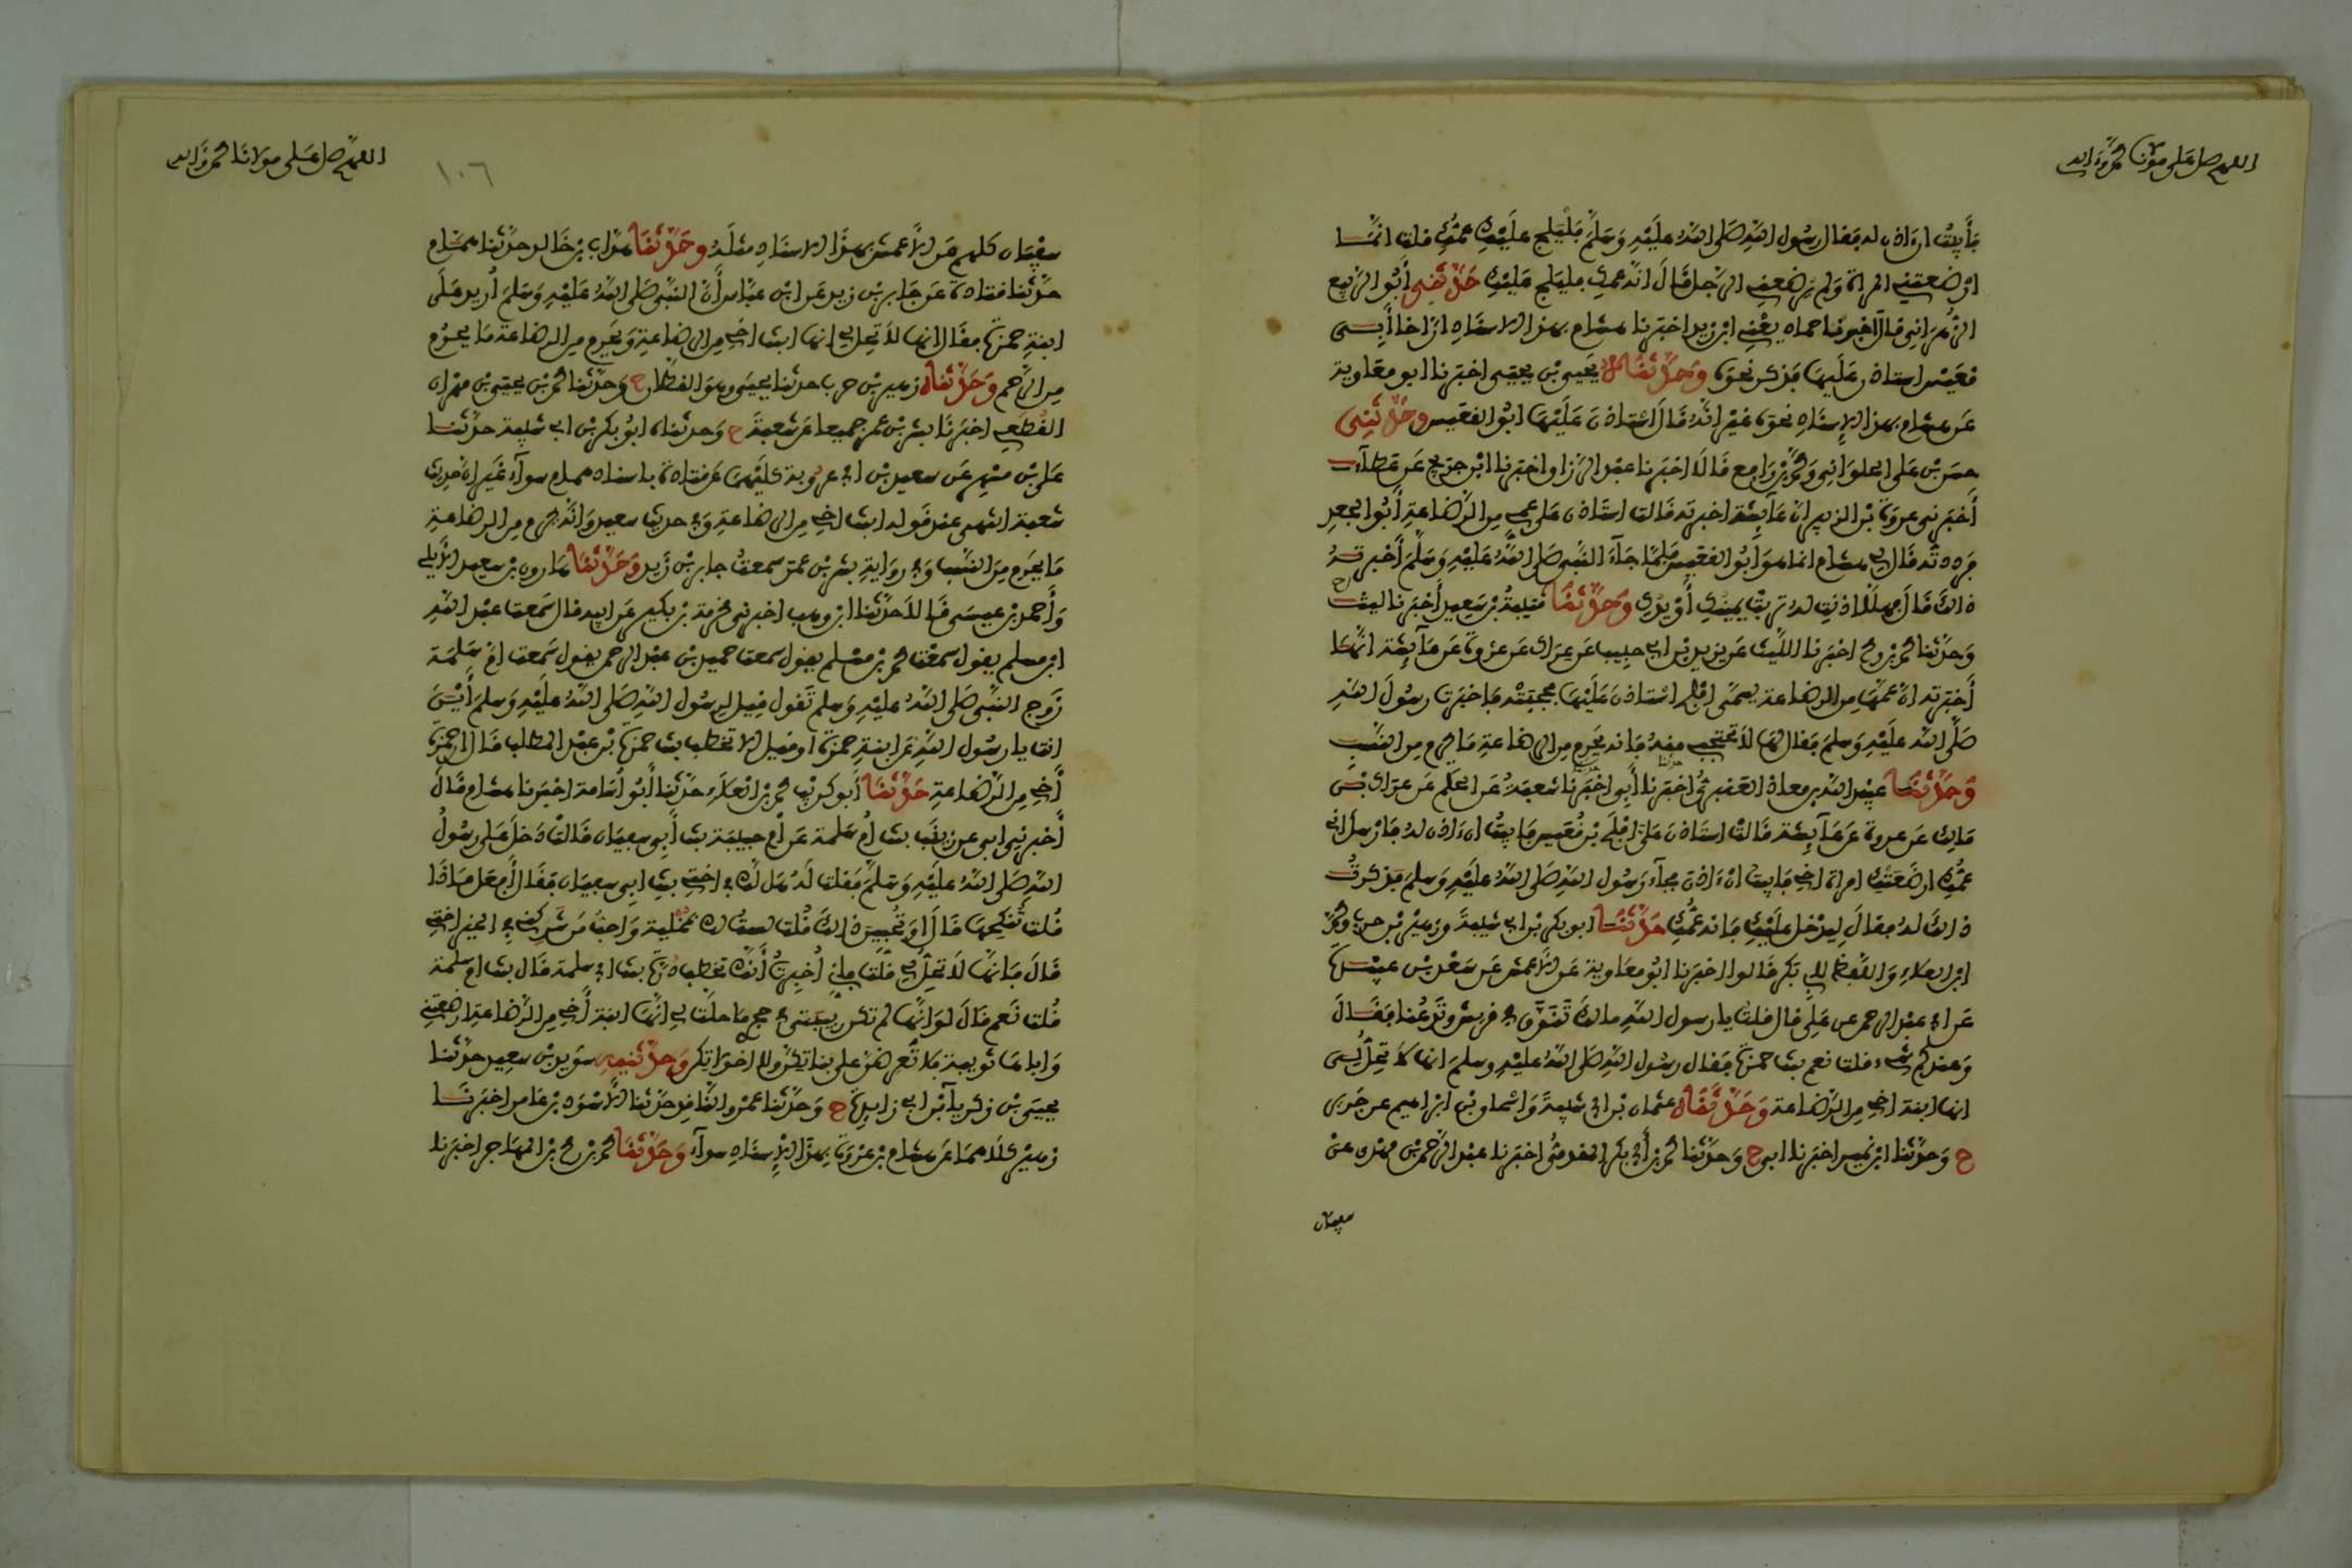 اللهم صل على مولانا محمد وءاله
فأبيت ان ءاذن له فقال رسول الله صلى الله عليه وسلم فليلج عليك عمك قلت انما
ارضعتني المرأة ولم يرضعني الرجل قال انه عمك فليلج عليك حدثني أبو الربيع
الزهراني قال اخبرنا حماد يعني ابن زيد اخبرنا هشام بهذا الاسناد ان اخا أبي
قعيس استاذن عليها فذكر نحوه وحدثناه يحيى بن يحيى اخبرنا ابو معاوية
عن هشام بهذا الإسناد نحوه غير انه قال استاذن عليها ابو القعيس وحدثني
حسن بن علي الحلواني ومحمد بن رافع قالا اخبرنا عبد الرزاق اخبرنا ابن جريج عن عطآء
أخبرني عروة بن الزبير ان عآئشة اخبرته قالت استاذن علي عمي من الرضاعة أبو الجعد
فرددته قال لي هشام انما هو ابو القعيس فلما جآء النبي صلى الله عليه وسلم أخبرته
ذالك قال فهلا اذنت له تربت يمينك أو يدك وحدثنا قتيبة بن سعيد أخبرنا ليث ح
وحدثنا محمد بن رمح اخبرنا الليث عن يزيد بن ابي حبيب عن عراك عن عروة عن عآئشة انها
أخبرته ان عمها من الرضاعة يسمى افلح استاذن عليها فحجبته فاخبرت رسول الله
صلى الله عليه وسلم فقال لها لا تحتجبي منه فإنه يحرم من الرضاعة ما يحرم من النسب
وحدثنا عبيد الله بن معاذ العنبري اخبرنا أبي اخبرنا شعبة عن الحكم عن عراك بن
مالك عن عروة عن عآئشة قالت استاذن علي افلح بن قعيس فابيت ان ءاذن له فارسل اني
عمك ارضعتك امرأة اخي فابيت ان ءاذن فجآء رسول الله صلى الله عليه وسلم فذكرت
ذالك له فقال ليدخل عليك فانه عمك حدثنا ابو بكر بن ابي شيبة وزهير بن حرب ومحمد
ابن العلاء واللفظ لابي بكر قالوا اخبرنا ابو معاوية عن الاعمش عن سعد بن عبيدة
عن ابي عبد الرحمن عن علي قال قلت يا رسول الله مالك تنوق في قريش وتدعنا فقال
وعندكم شيء قلت نعم بنت حمزة فقال رسول الله صلى الله عليه وسلم انها لا تحل لي
انها ابنة اخي من الرضاعة وحدثناه عثمان بن ابي شيبة واسحاق بن ابراهيم عن جرير
ح وحدثنا ابن نمير اخبرنا ابي ح وحدثنا محمد بن أبي بكر المقدمي اخبرنا عبد الرحمن بن مهدي عن
سفيان
اللهم صل على مولانا محمد وءاله
١٠٦
سفيان كلهم عن الأعمش بهذا الاسناد مثله وحدثنا هداب بن خالد حدثنا همام
حدثنا قتادة عن جابر بن زيد عن ابن عباس أن النبي صلى الله عليه وسلم أريد على
ابنة حمزة فقال انها لا تحل لي انها ابنت اخي من الرضاعة ويحرم من الرضاعة ما يحرم
من الرحم وحدثناه زهير بن حرب حدثنا يحيى وهو القطان ح وحدثنا محمد بن يحيى بن مهران
القطعي اخبرنا بشر بن عمر جميعا عن شعبة ح وحدثناه ابو بكر بن ابي شيبة حدثنا
علي بن مسهر عن سعيد بن ابي عروبة كليهما عن قتادة باسناد همام سوآء غير ان حديث
شعبة انتهى عند قوله ابنت اخي من الرضاعة وفي حديث سعيد وانه يحرم من الرضاعة
ما يحرم من النسب وفي رواية بشر بن عمر سمعت جابر بن زيد وحدثنا هارون بن سعيد الأيلي
وأحمد بن عيسى قالا حدثنا ابن وهب اخبرني مخرمة بن بكير عن ابيه قال سمعت عبد الله
ابن مسلم يقول سمعت محمد بن مسلم يقول سمعت حميد بن عبد الرحمن يقول سمعت ام سلمة
زوج النبي صلى الله عليه وسلم تقول قيل لرسول الله صلى الله عليه وسلم أين
انت يا رسول الله عن ابنة حمزة او قيل الا تخطب بنت حمزة بن عبد المطلب قال ان حمزة
أخي من الرضاعة حدثنا أبو كريب محمد بن العلاء حدثنا أبو أسامة اخبرنا هشام قال
أخبرني ابي عن زينب بنت ام سلمة عن أم حبيبة بنت أبي سفيان قالت دخل علي رسول
الله صلى الله عليه وسلم فقلت له هل لك في اختي بنت ابي سفيان فقال أفعل ماذا
قلت تنكحها قال أو تحبين ذالك قلت لست لك بمخلية واحب من شركني في الخير اختي
قال فانها لا تحل لي قلت فاني أخبرت أنك تخطب درة بنت ابي سلمة قال بنت ام سلمة
قلت نعم قال لو انها لم تكن ربيبتي في حجري ما حلت لي انها ابنة أخي من الرضاعة ارضعتني
واباها ثويبة فلا تعرضن علي بناتكن ولا اخواتكن وحدثنيه سويد بن سعيد حدثنا
يحيى بن زكريآء بن ابي زايدة ح وحدثنا عمرو الناقد حدثنا الأسود بن عامر اخبرنا
زهير كلاهما عن هشام بن عروة بهذا الإسناد سوآء وحدثنا محمد بن رمح بن المهاجر اخبرنا